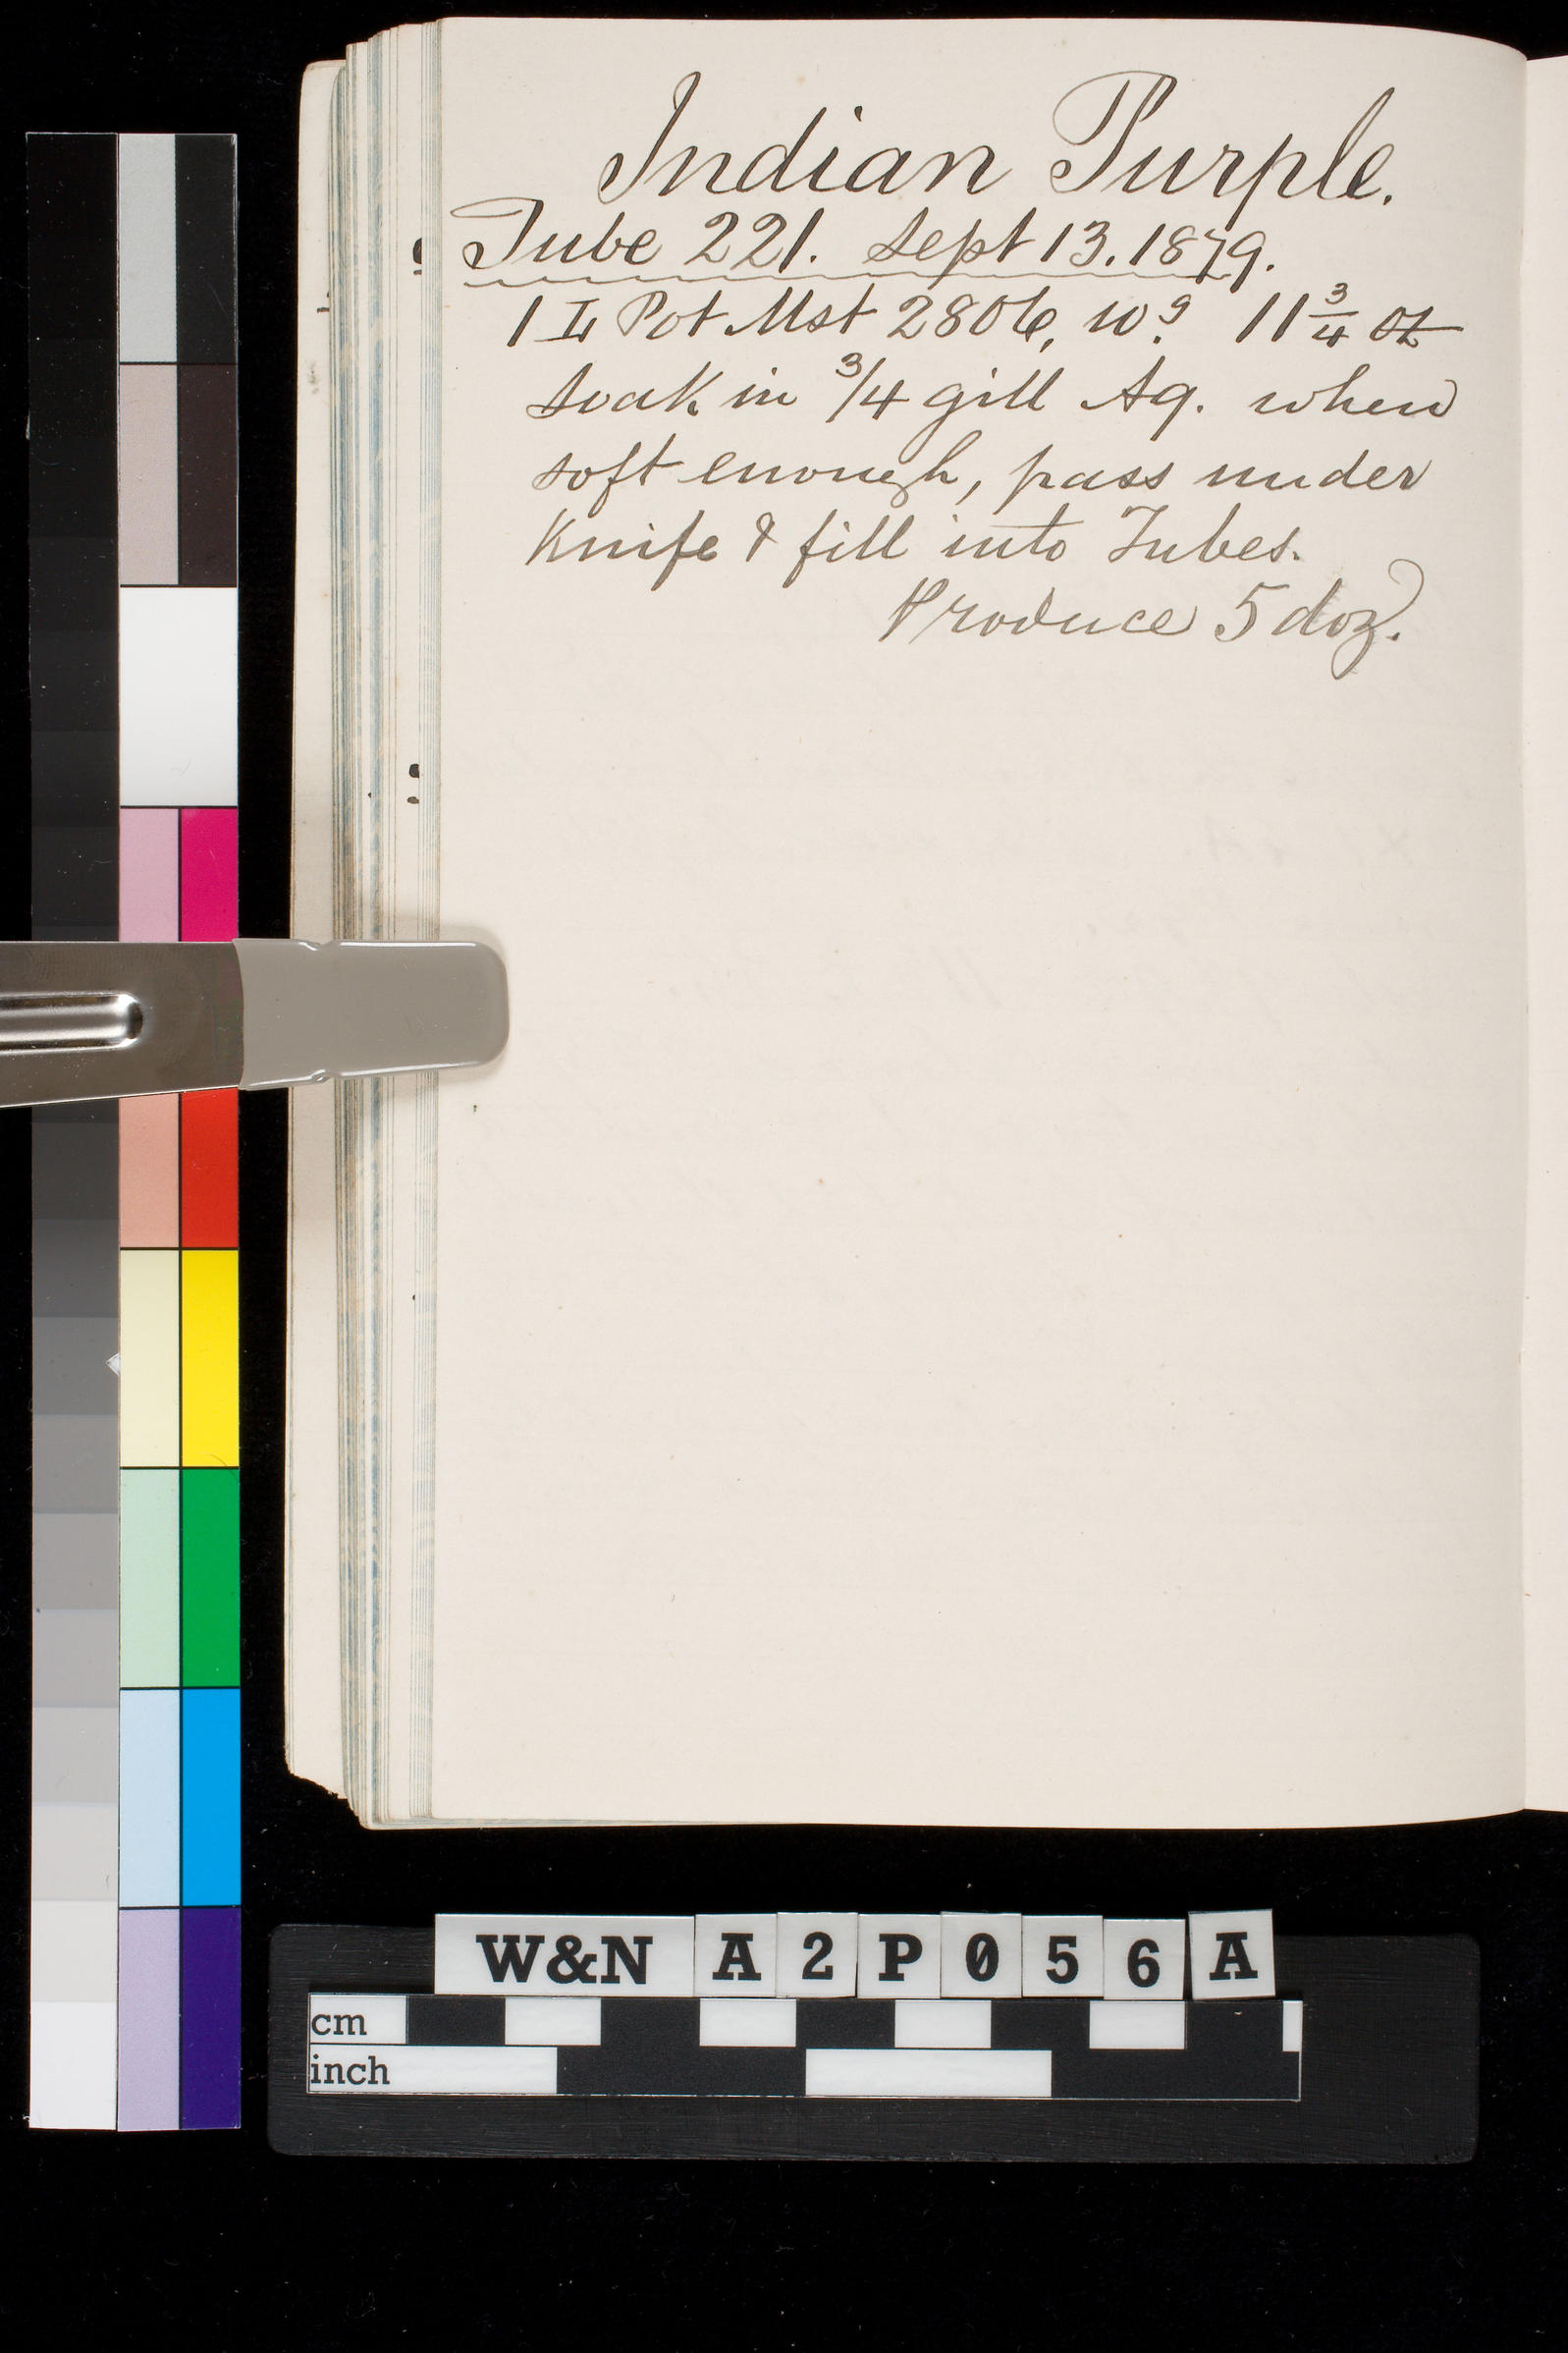 Indian Purple.
Tube 221. Sept 13. 1879.
1 Pot Mst 2806, wg. 11 3/4 oz
soak in 3/4 gill Aq. when
soft enough, pass under
Knife & fill into Tubes.
Produce 5 doz.
W&N A2P056A
cm
inch